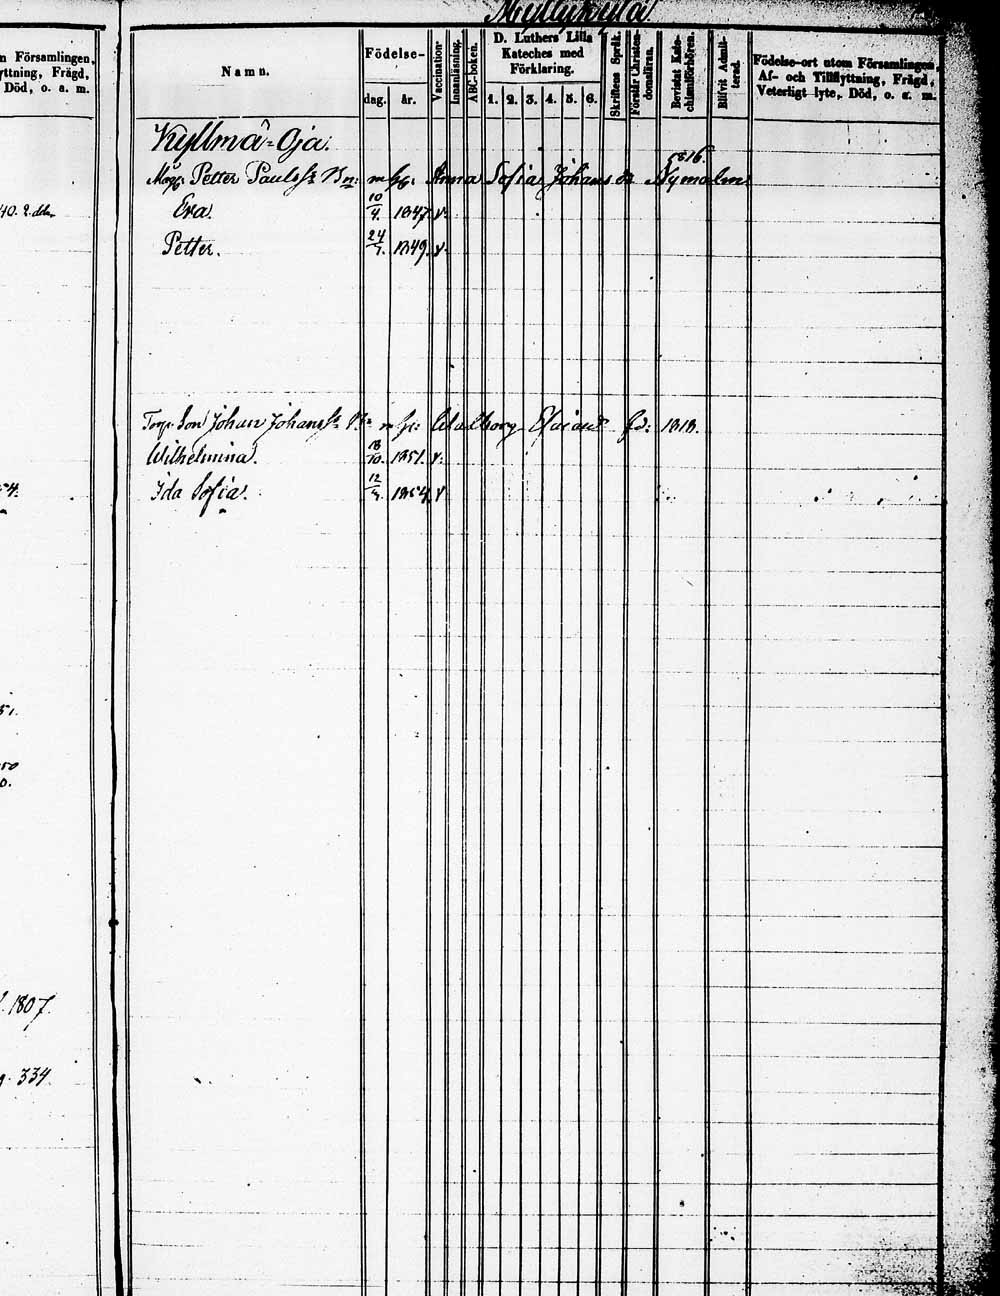 Församlingen,
yttning, Frägd,
Död, o. a. m.
40.
54.
51.
50
0.
1807.
334.
Namn.
Födelse-
dag. år.
Vaccination.
Innanläsning.
ABC-boken.
D. Luthers Lilla
Kateches med
Förklaring.
1. 2. 3. 4. 5. 6.
Skriftens Språk.
Förstår Christen-
domsläran.
Bevistat Kate-
chismiförhören.
Blifvit Admit-
terad.
Födelse-ort utom Församlingen,
Af- och Tillflyttning, Frägd,
Veterligt lyte, Död, o. a. m.
Kyllmä-Oja.
1816.
Petter Paulss: Bn: m hg: Anna Sofia Johans dr Nymalm
Eva. 10/4. 1847. v.
Petter. 24/7. 1849. v.
Torp. Son Johan Johanss: Bn m h: Walborg Esaias fd: 1818.
Wilhelmina. 18/10. 1851. v.
Ida Sofia. 1854. v